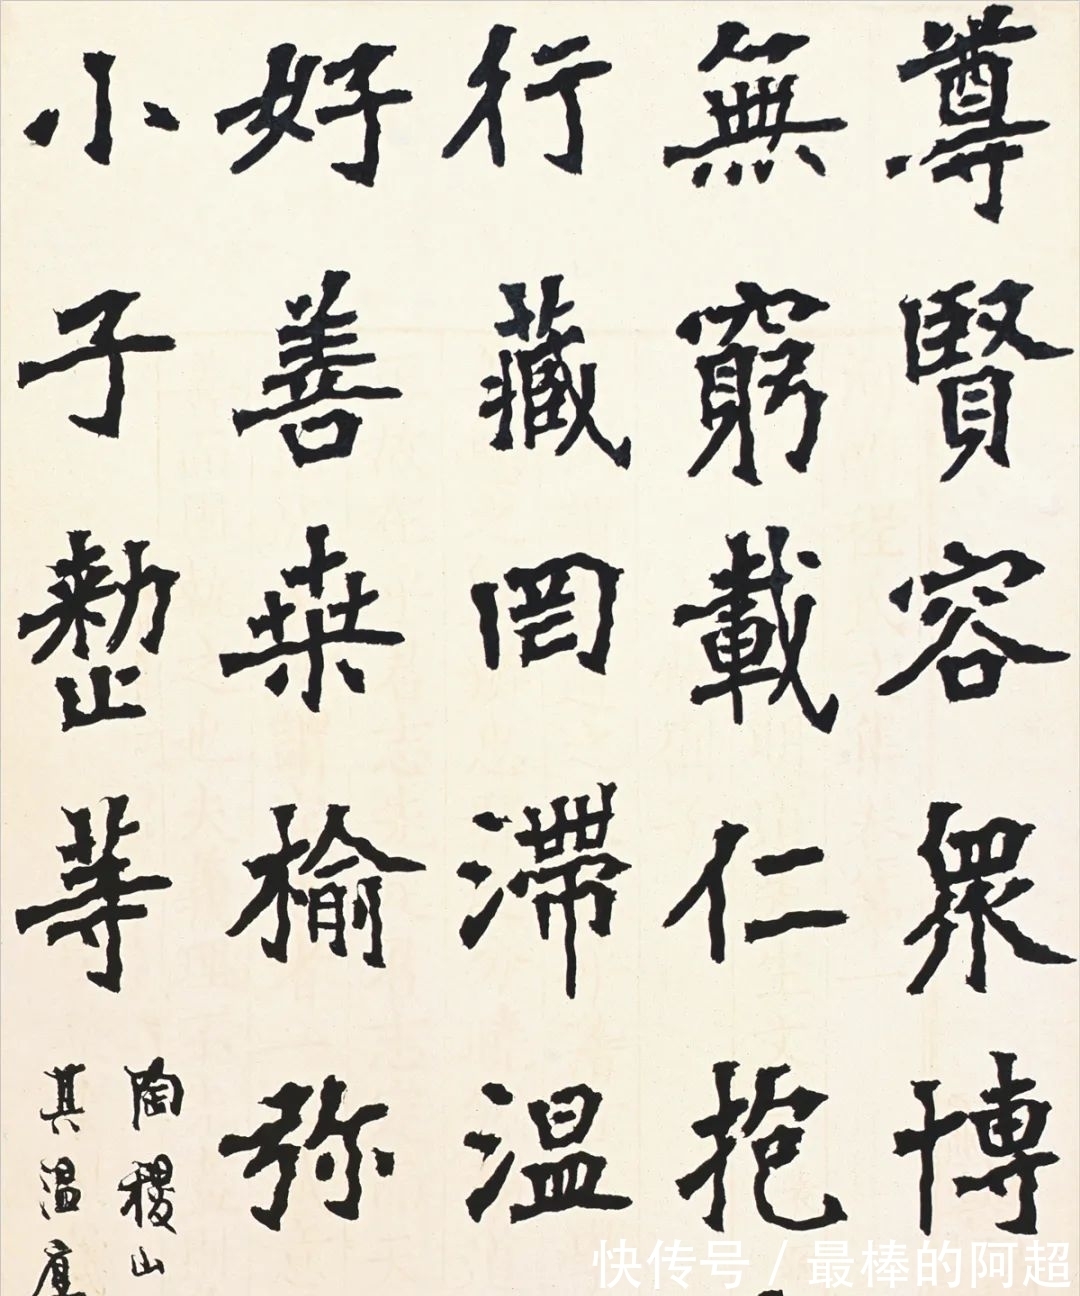 尊賢容眾博
無窮載仁抱
行藏罔滯温
好善桒榆弥
小子勑止等
陶稷山
其温
快传号 / 最棒的阿超